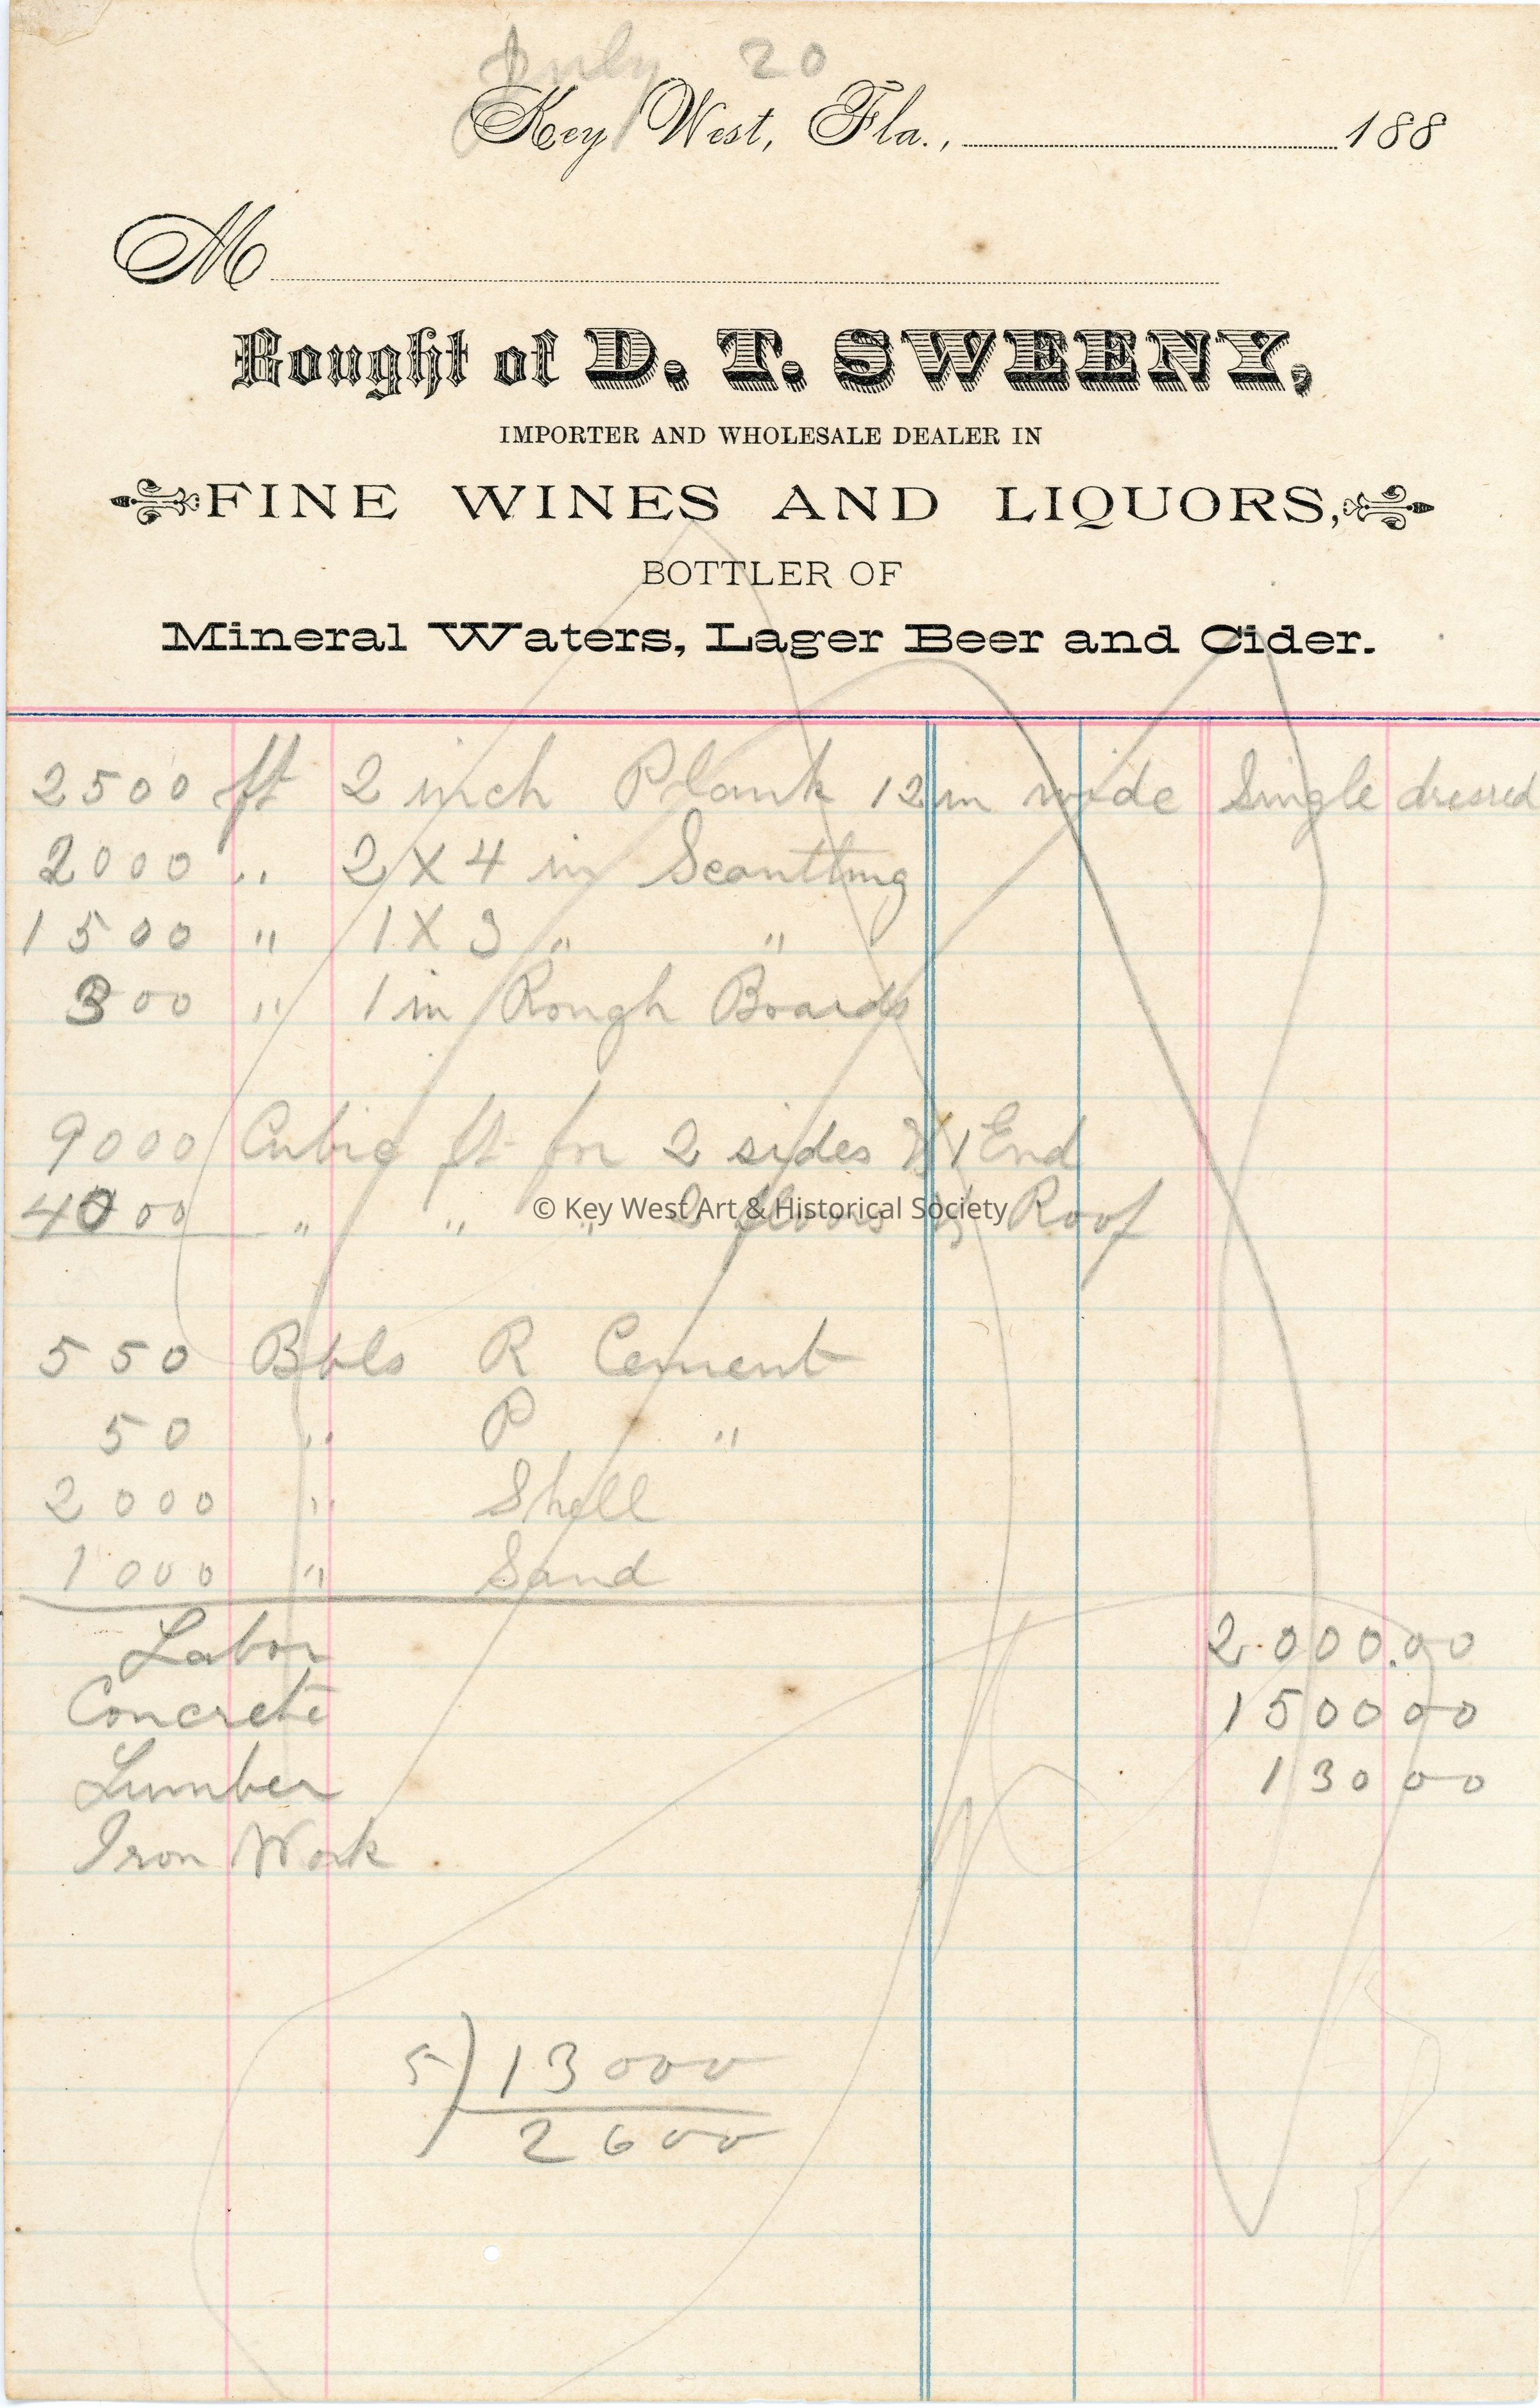 July 20
Key West, Fla., 188
M
Bought of D. T. SWEENY,
IMPORTER AND WHOLESALE DEALER IN
FINE WINES AND LIQUORS,
BOTTLER OF
Mineral Waters, Lager Beer and Cider.
2500 ft 2 inch Plank 12 in wide Single dressed
2000 " 2 X 4 in Scantling
1500 " 1 X 3 " "
300 " 1 in Rough Boards
9000 Cubic ft for 2 sides & 1 End
4000 " " " 2 floors & Roof
© Key West Art & Historical Society
550 Bbls R Cement
50 " P "
2000 " Shell
1000 " Sand
Labor 2000.00
Concrete 1500 00
Lumber 130 00
Iron Work
5) 13000
2600